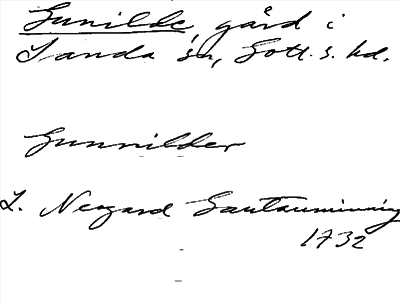 Gunilde, gård i
Sanda sn, Gotl. s. hd.
Gunnilder
L. Neogard Gautauminning
1732